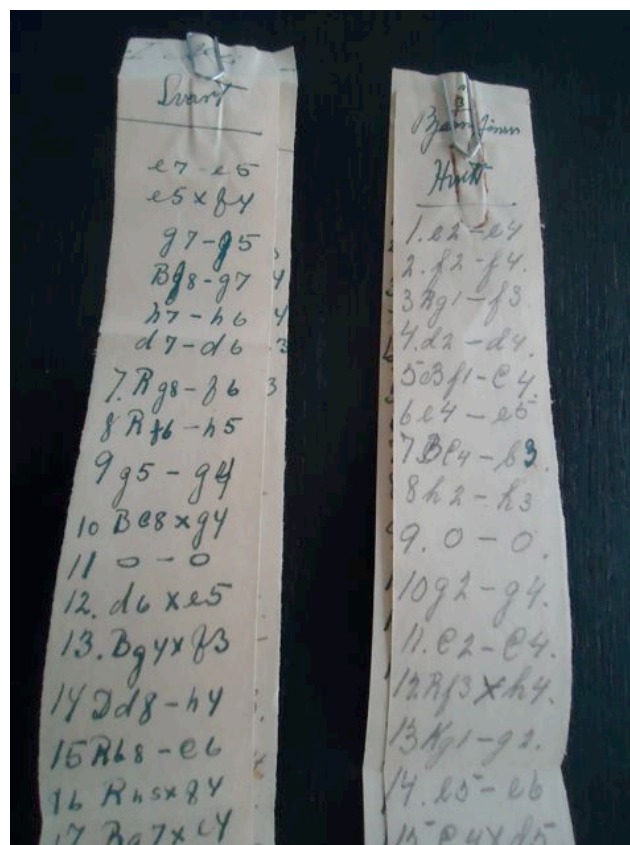 Svart
e7-e5
e5xf4
g7-g5
Bf8-g7
h7-h6
d7-d6
7. Rg8-f6
8 Rf6-h5
9 g5-g4
10 Bc8xg4
11 0-0
12. d6xe5
13. Bg4xf3
14 Dd8-h4
15 Rb8-c6
16 Rh5xf4
17 Bg7x
Hvitt
1. e2-e4
2. f2-f4.
3 Rg1-f3
4. d2-d4.
5 Bf1-c4
6 e4-e5
7 Bc4-b3.
8 h2-h3
9. 0-0.
10 g2-g4.
11. c2-c4.
12 Rf3xh4.
13 Kg1-g2.
14. e5-e6
15 c4xd5